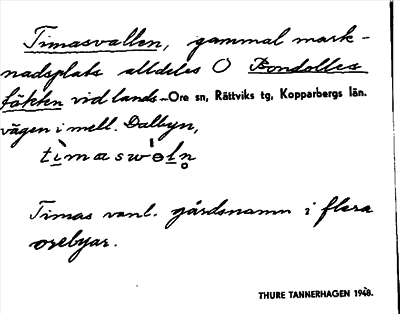 Timasvallen, gammal mark-
nadsplats alldeles O Bondolles
täkten vid lands- Ore sn, Rättviks tg, Kopparbergs län.
vägen i mell. Dalbyn,
Timas vanl. gårdsnamn i flera
orebyar.
THURE TANNERHAGEN 1948.